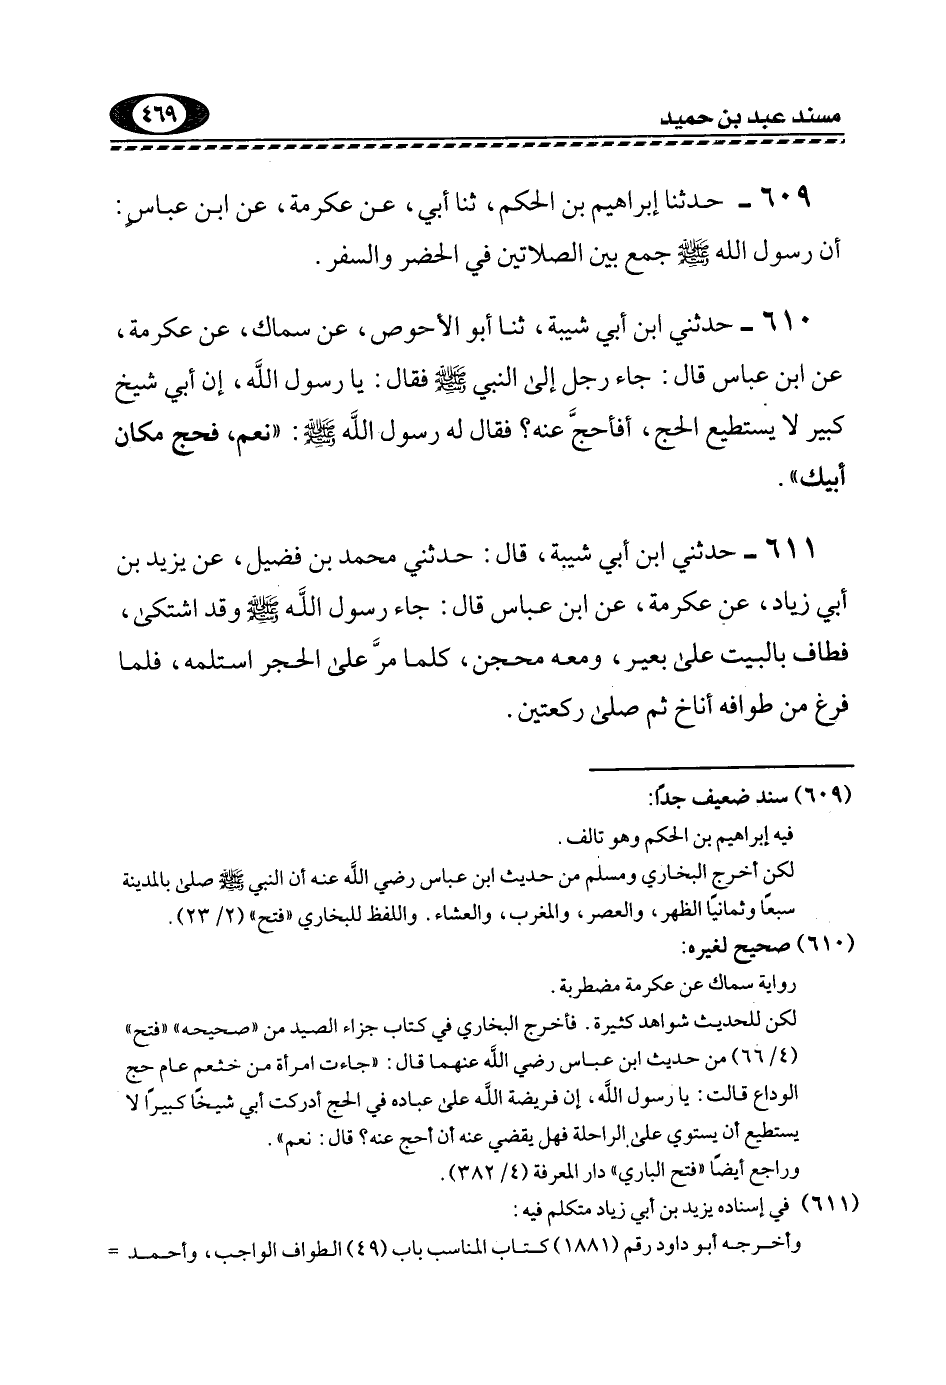 مسند عبد بن حميد
٤٦٩
٦٠٩ ـ حدثنا إبراهيم بن الحكم، ثنا أبي، عن عكرمة، عن ابن عباسٍ:
أن رسول الله ﷺ جمع بين الصلاتين في الحضر والسفر.
٦١٠ ـ حدثني ابن أبي شيبة، ثنا أبو الأحوص، عن سماك، عن عكرمة،
عن ابن عباس قال: جاء رجل إلىٰ النبي ﷺ فقال: يا رسول اللَّه، إن أبي شيخ
كبير لا يستطيع الحج، أفأحجَّ عنه؟ فقال له رسول اللَّه ﷺ: «نعم، فحج مكان
أبيك».
٦١١ ـ حدثني ابن أبي شيبة، قال: حدثني محمد بن فضيل، عن يزيد بن
أبي زياد، عن عكرمة، عن ابن عباس قال: جاء رسول اللَّه ﷺ وقد اشتكىٰ،
فطاف بالبيت علىٰ بعير، ومعه محجن، كلما مرَّ علىٰ الحجر استلمه، فلما
فرغ من طوافه أناخ ثم صلىٰ ركعتين.
(٦٠٩) سند ضعيف جدًا:
فيه إبراهيم بن الحكم وهو تالف.
لكن أخرج البخاري ومسلم من حديث ابن عباس رضي اللَّه عنه أن النبي ﷺ صلىٰ بالمدينة
سبعًا وثمانيًا الظهر، والعصر، والمغرب، والعشاء. واللفظ للبخاري «فتح» (٢/ ٢٣).
(٦١٠) صحيح لغيره:
رواية سماك عن عكرمة مضطربة.
لكن للحديث شواهد كثيرة. فأخرج البخاري في كتاب جزاء الصيد من «صحيحه» «فتح»
(٤/ ٦٦) من حديث ابن عباس رضي اللَّه عنهما قال: «جاءت امرأة من خثعم عام حج
الوداع قالت: يا رسول اللَّه، إن فريضة اللَّه علىٰ عباده في الحج أدركت أبي شيخًا كبيرًا لا
يستطيع أن يستوي علىٰ الراحلة فهل يقضي عنه أن أحج عنه؟ قال: نعم».
وراجع أيضًا «فتح الباري» دار المعرفة (٤/ ٣٨٢).
(٦١١) في إسناده يزيد بن أبي زياد متكلم فيه:
وأخرجه أبو داود رقم (١٨٨١) كتاب المناسب باب (٤٩) الطواف الواجب، وأحمد =